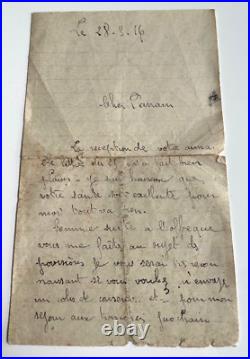 Le 28-3-16
Cher Parrain
La réception de votre aima
ble lettre du 21 m'a fait bien
plaisir je suis heureux que
votre santé soit excellente pour
moi tout va bien.
Comme suite à l'offre que
vous me faîtes au sujet des
provisions je vous serai très recon
naissant si vous voulez m'envoyer
un colis de conserves et pour mon
séjour aux tranchées prochain